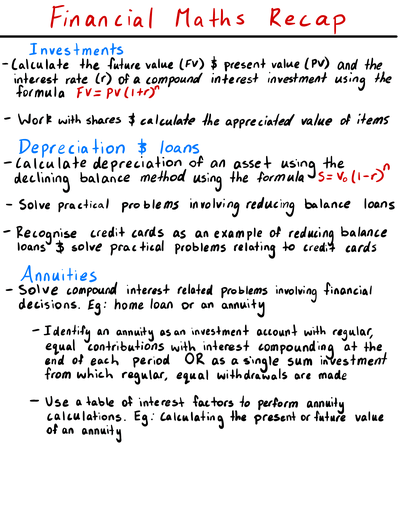 Financial Maths Recap
Investments
- Calculate the future value (FV) $ present value (PV) and the
interest rate (r) of a compound interest investment using the
formula FV = PV(1+r)ⁿ
- Work with shares $ calculate the appreciated value of items
Depreciation $ loans
- Calculate depreciation of an asset using the
declining balance method using the formula S = V₀(1-r)ⁿ
- Solve practical problems involving reducing balance loans
- Recognise credit cards as an example of reducing balance
loans $ solve practical problems relating to credit cards
Annuities
- Solve compound interest related problems involving financial
decisions. Eg: home loan or an annuity
- Identify an annuity as an investment account with regular,
equal contributions with interest compounding at the
end of each period OR as a single sum investment
from which regular, equal withdrawals are made
- Use a table of interest factors to perform annuity
calculations. Eg: Calculating the present or future value
of an annuity